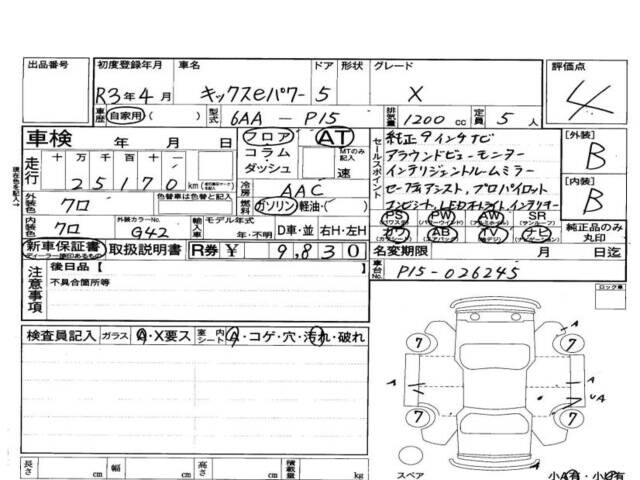 出品番号 初度登録年月 車名 ドア 形状 グレード 評価点
R3年4月 キックスeパワー 5 X 4
車歴 自家用( ) 型式 6AA-P15 排気量 1200cc 定員 5人
車検 年 月 日 フロア AT セールスポイント 純正9インチナビ [外装]
十万 万 千 百 十 コラム MTのみ記入 アラウンドビューモニター B
走行 25170 km ダッシュ 速 インテリジェントルームミラー
現在色を記入→
外装色 クロ 色替車は色替と記入 冷房 AAC セーフティアシスト,プロパイロット [内装]
燃料 ガソリン・軽油・( ) コンビシート,LEDオートライト,インテリキー B
内装色 クロ 外装カラーNo. G42 輸入車 モデル年式 年・不明 D車・並 右H・左H PS PW AW SR
カワ AB TV ナビ 純正品のみ丸印
新車保証書 ディーラー捺印あるもの 取扱説明書 R券 ¥ 9,830 名変期限 月 日迄
注意事項 後日品【 】 車台No. P15-026245
不具合箇所等 ロック車
検査員記入 ガラス A・X要ス 室内シート A・コゲ・穴・汚れ・破れ
7 7 A
A A
UA
7 7 A
長さ cm 幅 cm 高さ cm 積載量 kg スペア 小A有・小U有